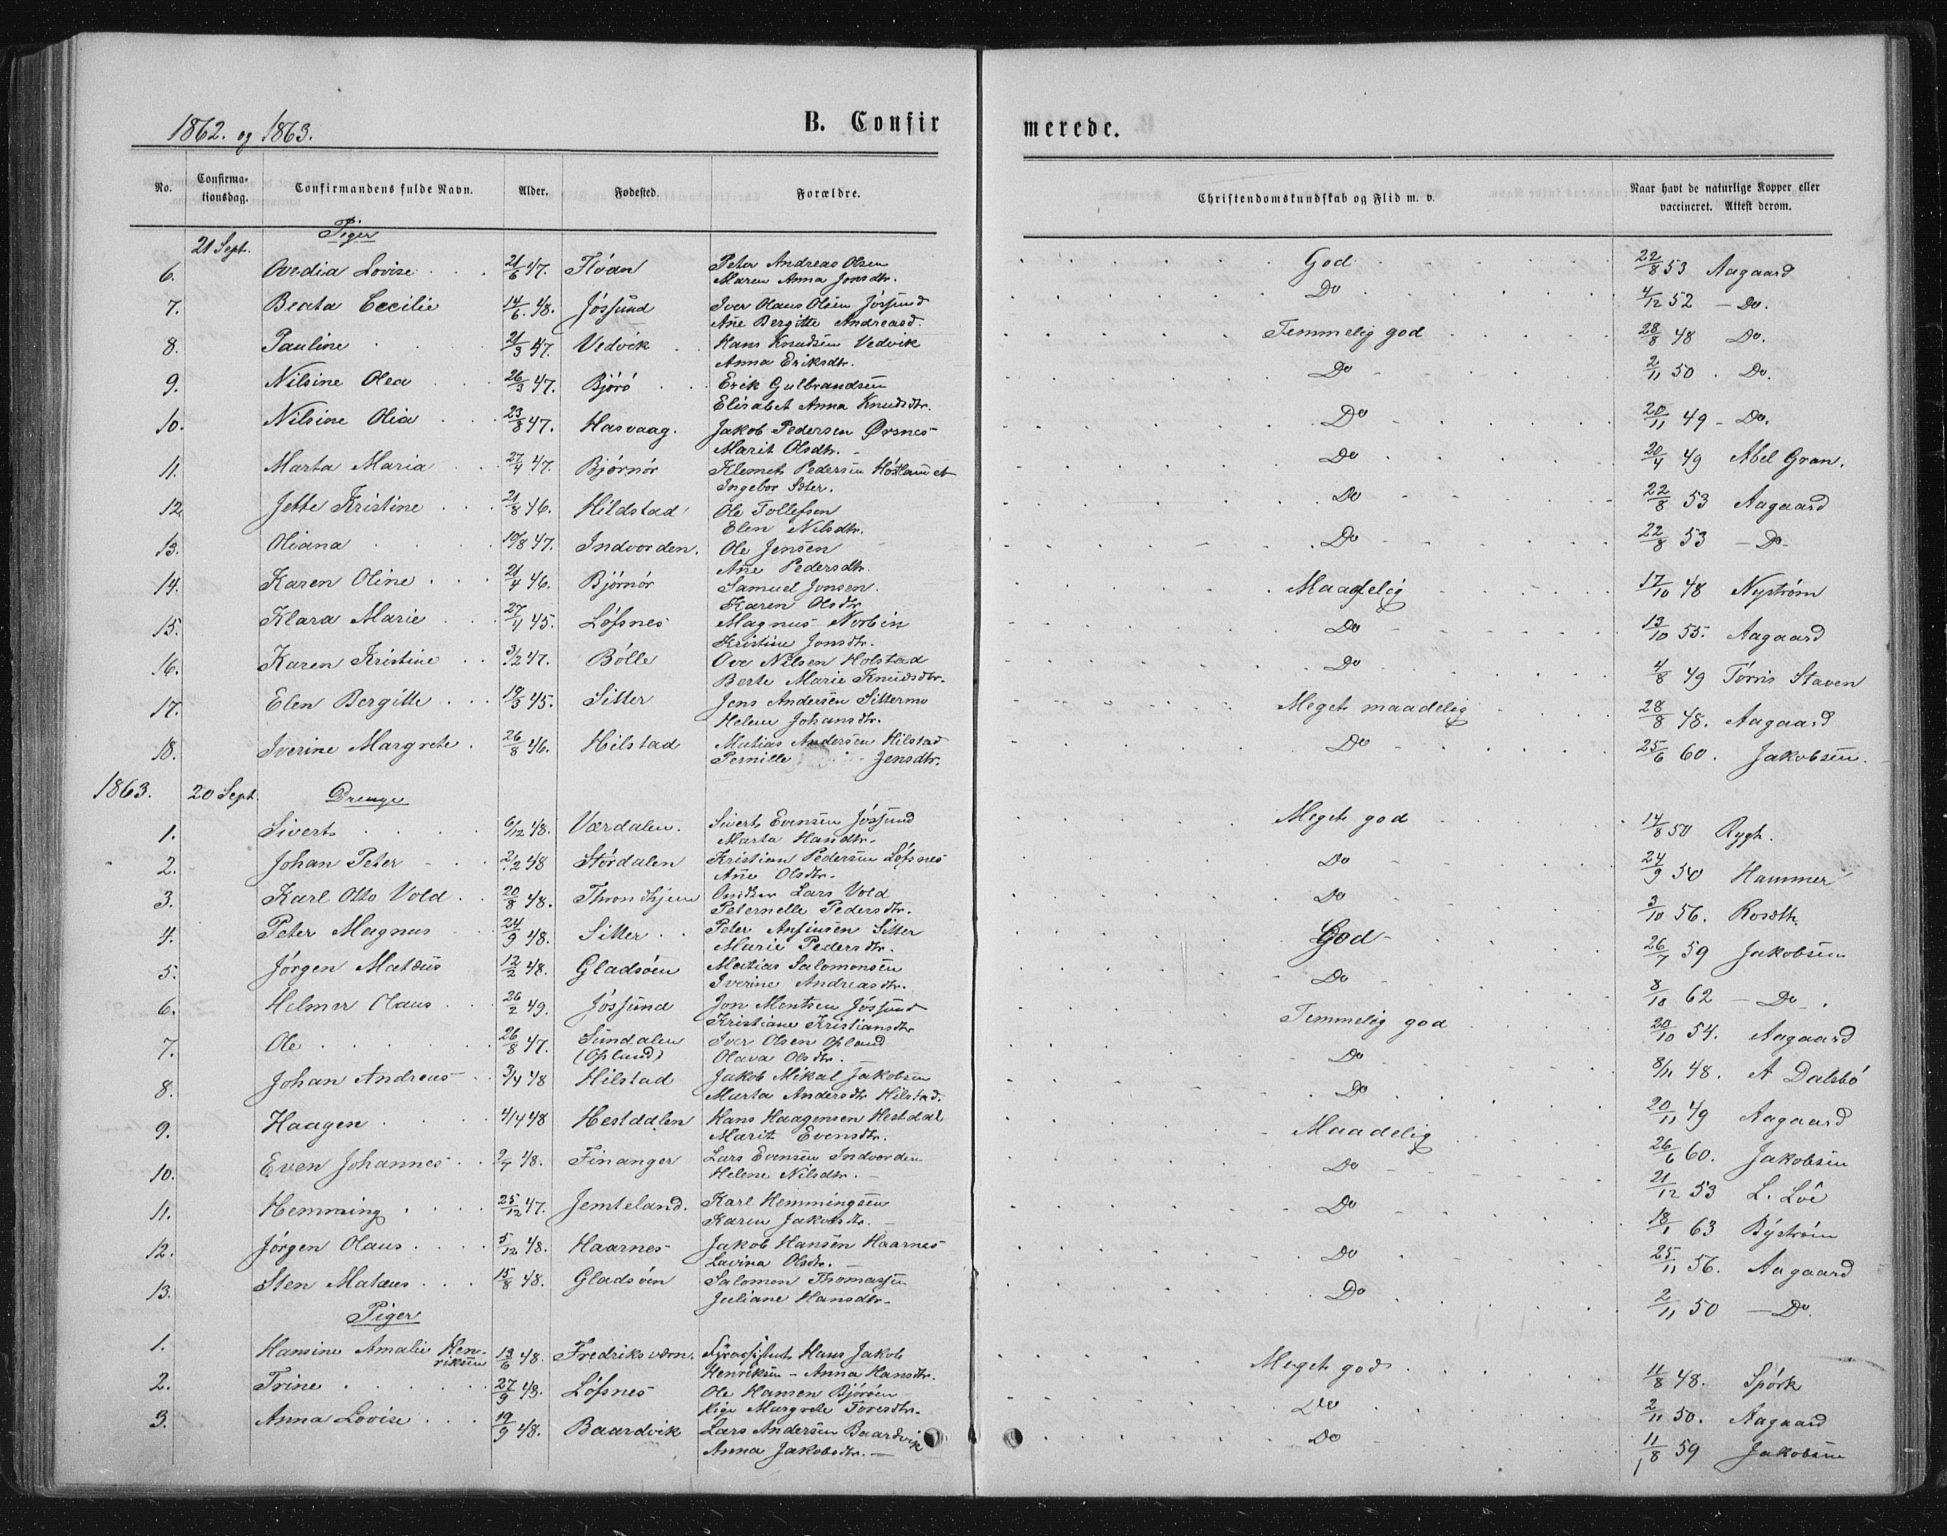 1862. og 1863.
B. Confirmerede.
No. Confirmationsdag. Confirmandens fulde Navn. Alder. Fødested. Forældre. Christendomskundskab og Flid m. v. Naar havt de naturlige Kopper eller vaccineret. Attest derom.
21 Sept. Piger
6. Ovedia Lovise 21/6 47. Flodn Peter Andreas Olsen God 22/8 53 Aagaard
Maren Anna Jonsdtr.
7. Beata Cecilie 14/6. 48. Jössund Iver Olaus Olsen Jössund Do 4/12 52 – Do.
Ane Bergitte Andreasd.
8. Pauline 21/3 47. Vedvik Hans Knudsen Vedvik Temmelig god 28/8 48 Do.
Anna Eriksdtr.
9. Nilsine Olea 26/3 47. Bjørø Erik Gulbrandsen Do 2/11 50 . Do.
Elisabet Anna Knudsdtr.
10. Nilsine Olia 23/8 47. Hasvaag. Jakob Pedersen Ørsnes Do 20/11 49 – Do.
Marit Olsdtr.
11. Marta Maria 27/4 47. Bjørnør Klemet Pedersen Do 20/4 49 Abel Gran.
Ingebor
12 Jette Kristine 21/8 46. Hildstad Ole Tollefsen Do 22/8 53 Aagaard
Elen Nilsdtr.
13. Oliana 19/8 47. Indvorden. Ole Jensen Do 22/8 53 – Do
Ane Pedersdtr.
14. Karen Oline 21/4 46. Bjørnør Samuel Jonsen Maadelig 17/10 48 Nystrøm
Karen Olsdtr
15. Klara Marie 27/4 45. Løfsnes Magnus Norbin Do 13/10 55. Aagaard
Kristine Jonsdtr.
16. Karen Kristine 3/2 47. Bölle Ove Nilsen Holstad Do 4/8 49 Tørris Staven
Berte Marie Knudsdtr.
17. Elen Bergitte 19/3 45. Sitter Jens Andersen Sittermo Meget maadelig 28/8 48. Aagaard
Helene Johansdtr.
18. Iverine Margrete. 26/8 46. Hilstad Matias Andersen Hilstad Do 25/6 60. Jakobsen.
Pernille Jensdtr.
1863. 20 Sept. Drenge
1. Sivert 6/12 48. Værdalen. Sivert Evensen Jössund Meget god 14/8 50 Rygh.
Marta Hansdtr.
2. Johan Peter 2/12 48 Størdalen Kristian Pedersen Løfsnes Do 24/9 50 Hammer
Ane Olsdtr.
3. Karl Otto Vold 20/8 48. Throndhjem Lars Vold Do 3/10 56. Rosdth
Peternelle Pedersdtr.
4. Peter Magnus 24/9 48. Sitter Peter Anfinsen Sitter God 26/7 59 Jakobsen
Marie Pedersdtr.
5. Jørgen Matæus 12/2 48. Gladsøen Matias Salomonsen Do 8/10 62 – Do.
Iverine Andreasdtr.
6. Helmer Olaus 26/2 49. Jössund Jon Mentsen Jössund Temmelig god 20/10 54. Aagaard
Kristiane Kristiansdtr
7. Ole 26/8 47. Sundalen Iver Olsen Opland Do 8/11 48. A Dalsbø
(Oplund) Olava Olsdtr.
8. Johan Andreas 3/4 48 Hilstad Jakob Mikal Jakobsen Do 20/11 49 Aagaard
Marta Andersdtr Hilstad.
9. Haagen 4/4 48 Hestdalen Hans Haagensen Hestdal Maadelig 26/6 60. Jakobsen
Marit Evensdtr.
10. Even Johannes 2/7 48. Finanger Lars Evensen Indvorden Do 21/12 53 L. Löe
Helene Nilsdtr.
11. Hemming 25/12 47. Jemteland. Karl Hemmingsen Do 18/1 63 Bystrøm
Karen Jakobsdtr.
12. Jørgen Olaus 5/12 48. Haarnes Jakob Hansen Haarnes Do 25/11 56. Aagaard
Lavina Olsdtr.
13. Sten Matæus 15/8 48. Gladsøen Salomon Thomassen Do 2/11 50 – Do.
Juliane Hansdtr.
Piger
1. Hansine Amalie Henriksen 13/6 48. Fredriksværn. Fyrassistent Hans Jakob Meget god 11/8 48. Spörk
Henriksen – Anna Hansdtr.
2. Trine 27/9 48. Løfsnes Ole Hansen Bjørøen Do 2/11 50. Aagaard
Margrete Toresdtr.
3. Anna Lovise 19/9 48. Baardvik Lars Andersen Baardvik Do 11/8 59 Jakobsen
Anna Jakobsdtr.